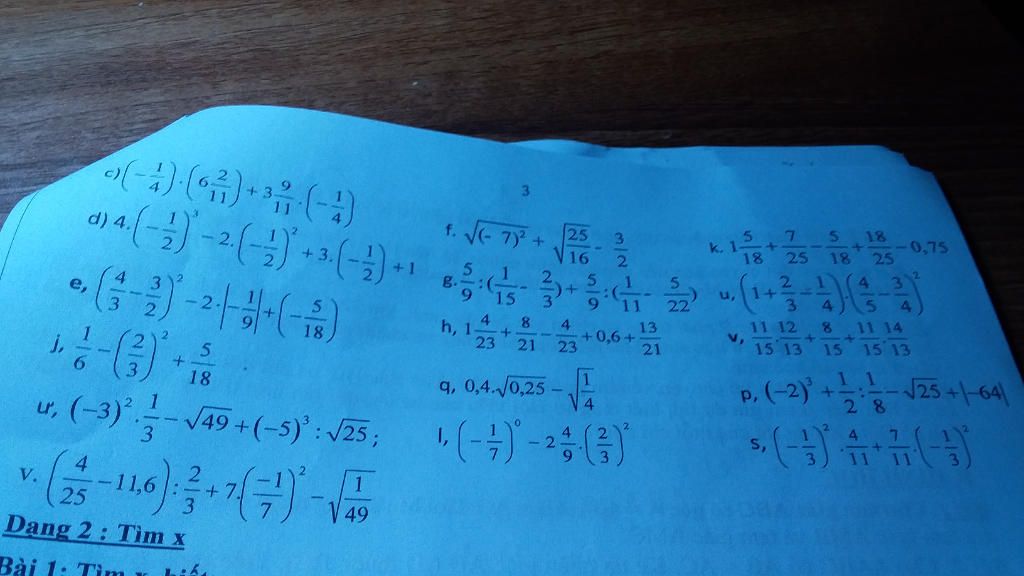 3
c) (-1/4).(6 2/11)+3 9/11.(-1/4)
d) 4.(-1/2)³-2.(-1/2)²+3.(-1/2)+1
e, (4/3-3/2)²-2.|-1/9|+(-5/18)
j, 1/6-(2/3)²+5/18 .
ư, (-3)².1/3-√49+(-5)³:√25;
v. (4/25-11,6):2/3+7.(-1/7)²-√(1/49)
f. √((- 7)²)+√(25/16)-3/2
g. 5/9:(1/15-2/3)+5/9:(1/11-5/22)
h, 1 4/23+8/21-4/23+0,6+13/21
q, 0,4.√0,25-√(1/4)
l, (-1/7)⁰-2 4/9.(2/3)²
k. 1 5/18+7/25-5/18+18/25-0,75
u, (1+2/3-1/4).(4/5-3/4)²
v, 11/15.12/13+8/15+11/15.14/13
p, (-2)³+1/2:1/8-√25+|-64|
s, (-1/3)².4/11+7/11.(-1/3)²
Dạng 2 : Tìm x
Bài 1: Tìm x, biết